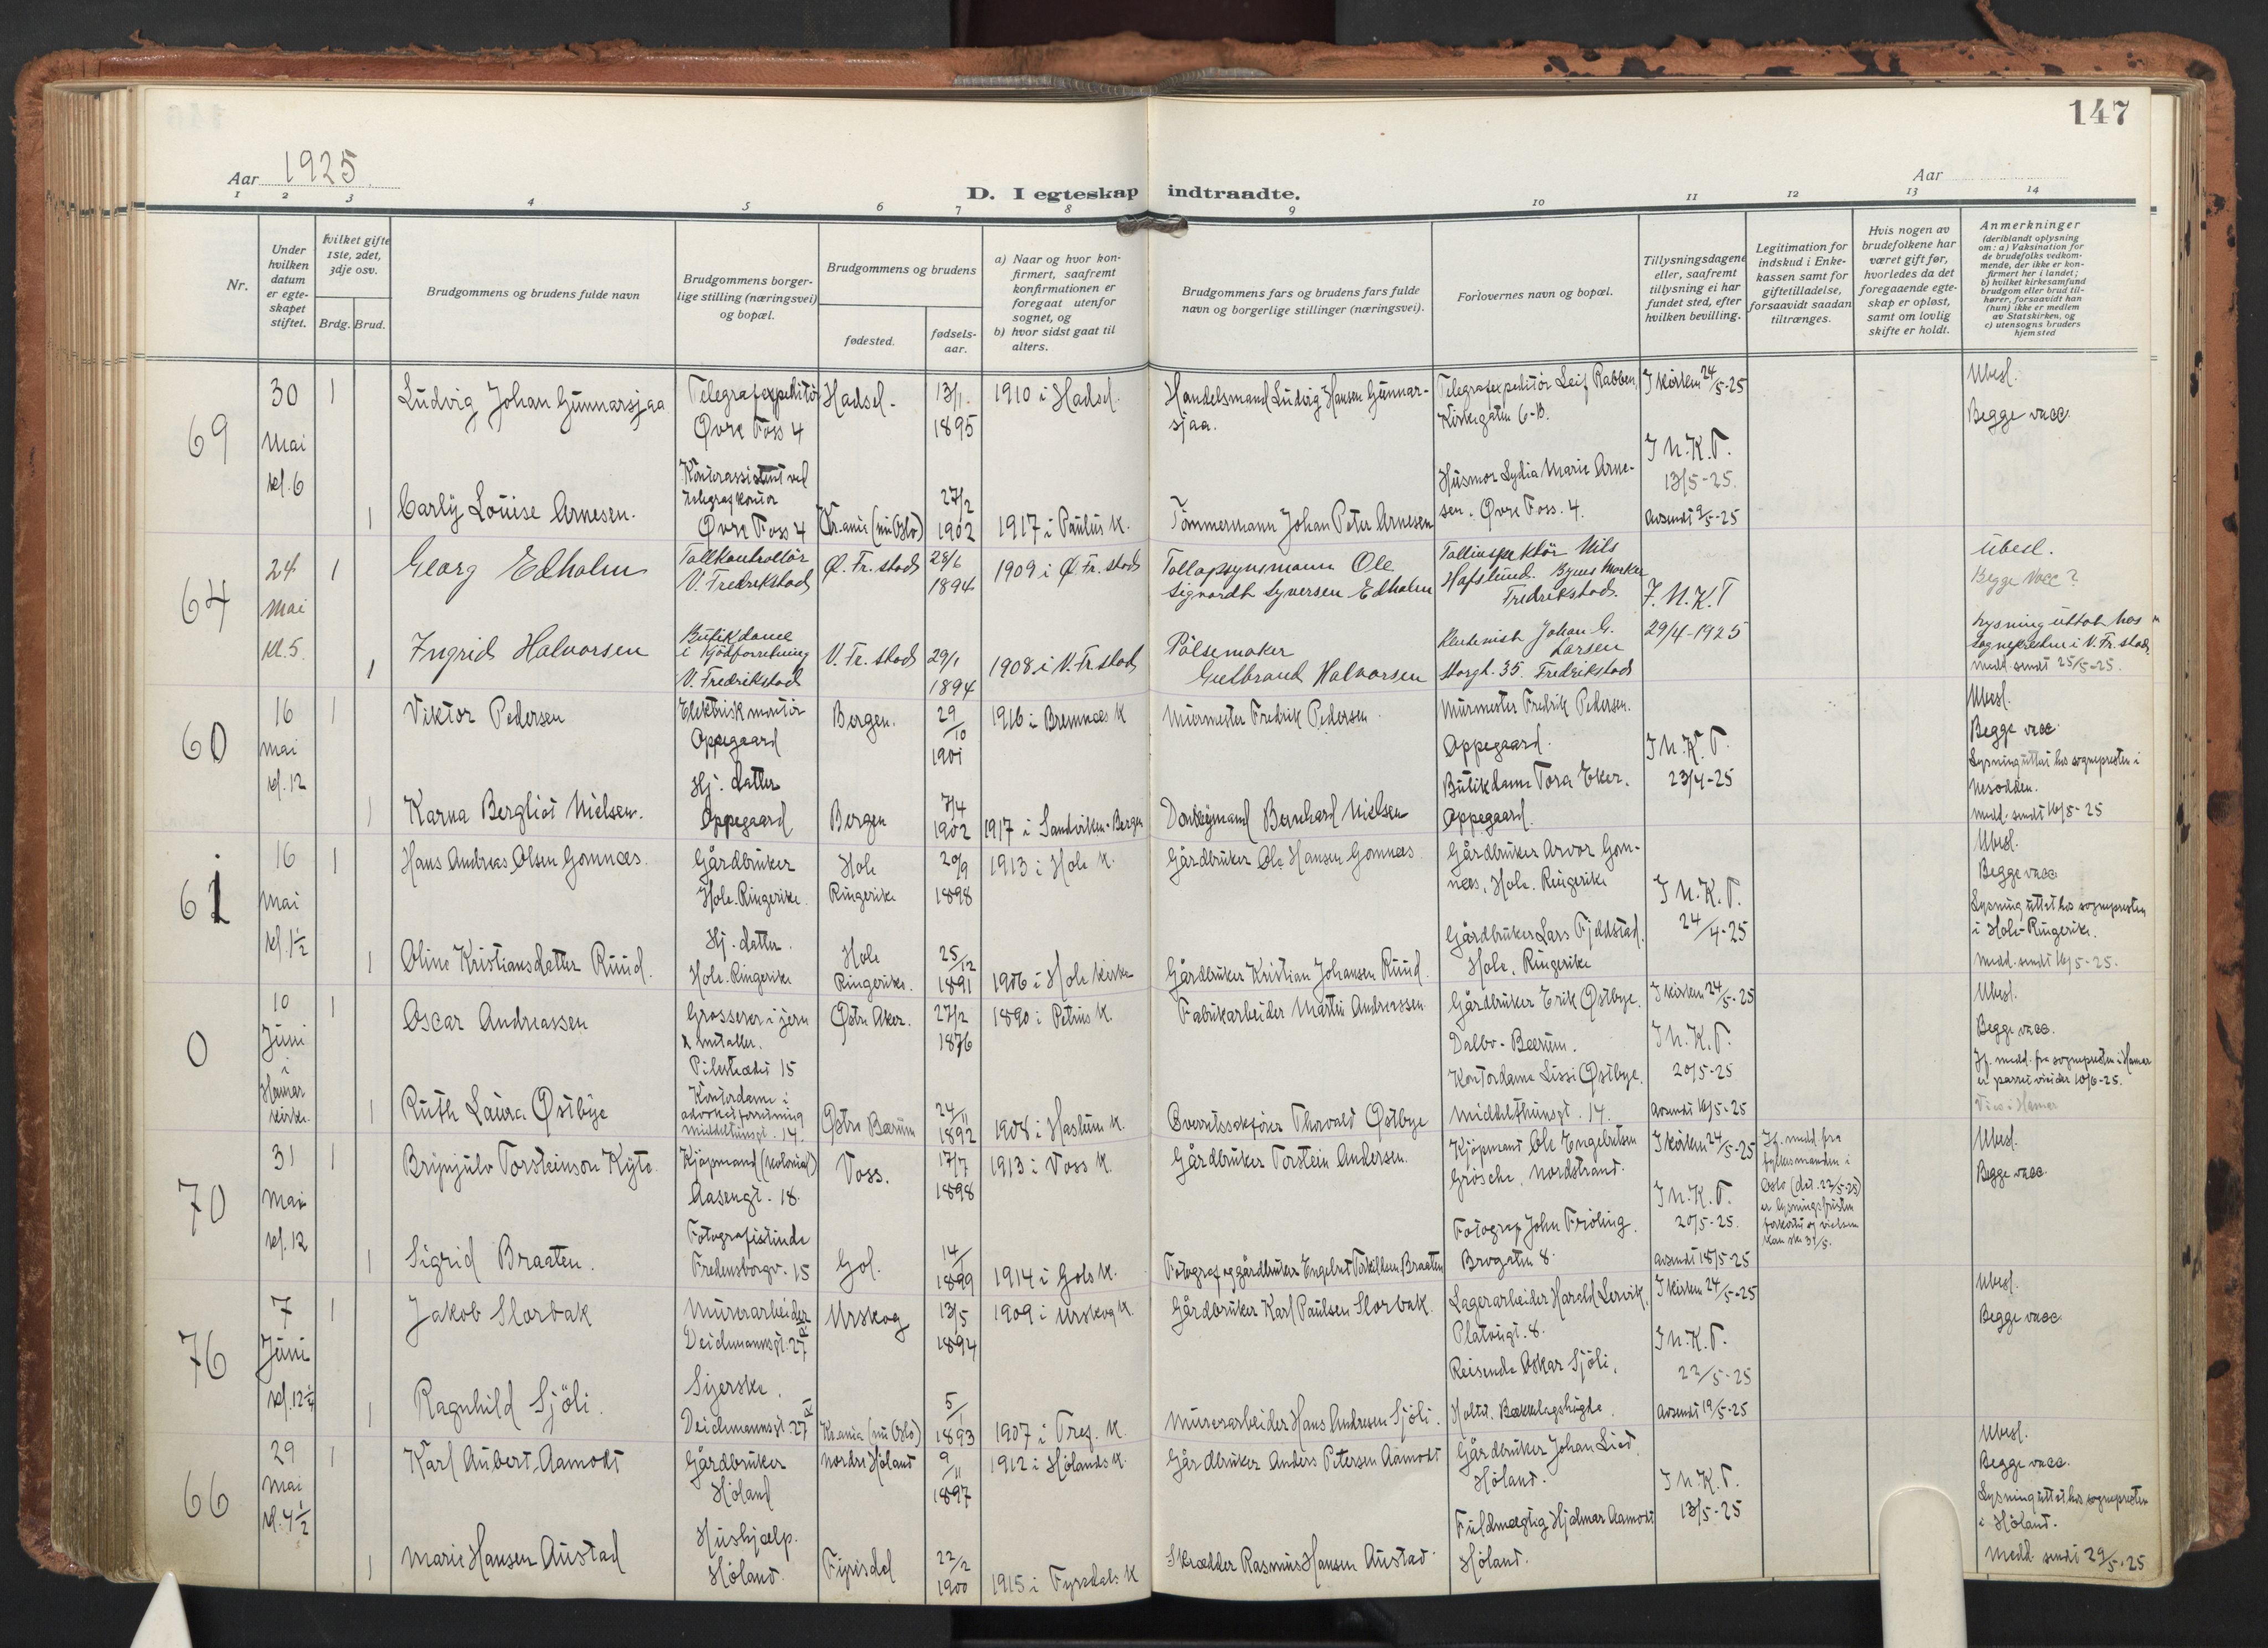 147
Aar 1925.
Aar
D. I egteskap indtraadte.
1 2 3 4 5 6 7 8 9 10 11 12 13 14
Nr.
Under hvilken datum er egteskapet stiftet.
hvilket gifte 1ste, 2det, 3dje osv.
Brdg. Brud.
Brudgommens og brudens fulde navn
Brudgommens borgerlige stilling (næringsvei) og bopæl.
Brudgommens og brudens
fødested.
fødselsaar.
a) Naar og hvor konfirmert, saafremt konfirmationen er foregaat utenfor sognet, og
b) hvor sidst gaat til alters.
Brudgommens fars og brudens fars fulde navn og borgerlige stillinger (næringsvei).
Forlovernes navn og bopæl.
Tillysningsdagene eller, saafremt tillysning ei har fundet sted, efter hvilken bevilling.
Legitimation for indskud i Enkekassen samt for giftetilladelse, forsaavidt saadan tiltrænges.
Hvis nogen av brudefolkene har været gift før, hvorledes da det foregaaende egteskap er opløst, samt om lovlig skifte er holdt.
Anmerkninger (deriblandt oplysning om: a) Vaksination for de brudefolks vedkommende, der ikke er konfirmert her i landet; b) hvilket kirkesamfund brudgom eller brud tilhører, forsaavidt han (hun) ikke er medlem av Statskirken, og c) utensogns bruders hjemsted
69
30 Mai kl. 6
1 Ludvig Johan Gunnarsjaa
Telegrafexpeditör Øvre Foss 4
Hadsel.
13/1. 1895
1910 i Hadsel.
Handelsmand Ludvig Hansen Gunnarsjaa.
Telegrafexpeditör Leif Rabben, Kirkegaten 6-B.
I kirken 24/5-25
I N.K.T. 13/5-25.
Avsendt 9/5-25
Ubesl.
Begge vacc.
1 Carly Louise Arnesen.
Kontorassistent ved telegrafkontor Øvre Foss 4
Kr.ania (nu Oslo)
27/2 1902
1917 i Paulus K.
Tömmermann Johan Peter Arnesen
Husmor Lydia Marie Arnesen. Øvre Foss. 4.
64
24 Mai Kl. 5.
1 Georg Edholm
Tollkontrollör V. Fredrikstad
Ø. Fr. stad
28/6 1894
1909 i Ø. Fr. stad
Tollopsynsmann Ole Sigvardt Syversen Edholm
Tollinspektör Nils Hafslund. Byens Marker Fredrikstad.
I.N.K.T
29/4-1925
Ubesl.
Begge Vacc?
Lysning uttatt hos sogneprestem i V. Fr. stad,
medd. sendt 25/5-25.
1 Ingrid Halvorsen
Butikdame i Kjødforretning V. Fredrikstad
V. Fr. stad
29/1 1894
1908 i V. Fr. stad
Pölsemaker Gutbrand Halvorsen
Johan G. Larsen
Storgt. 35. Fredrikstad
60
16 Mai kl. 12
1 Viktor Pedersen
Elektrisk montör Oppegaard
Bergen.
29/10 1901
1916 i Bremnæs K
Murmester Fredrik Pedersen.
Murmester Fredrik Pedersen. Oppegaard.
I N.K.T. 23/4-25
Ubesl.
Begge vacc
Lysning uttat hos sognepresten i Nesodden.
medd. sendt 16/5-25
1 Karna Bergliot Nielsen.
Hj. datter Oppegaard
Bergen
7/4 1902
1917 i Sandviken-Bergen
Donkeymand Bernhard Nielsen
Butikdame Tora Eker. Oppegaard.
61
16 Mai kl. 1½
1 Hans Andreas Olsen Gomnæs.
Gårdbruker Hole. Ringerike.
Hole Ringerike
20/9 1898
1913 i Hole K.
Gårdbruker Ole Hansen Gomnæs.
Gårdbruker Arvor Gomnæs, Hole. Ringerike
I N.K.T. 24/4-25
Ubesl.
Begge vacc
Lysning uttat hos sognepresten i Hole-Ringerike.
Medd. sendt 16/5-25.
1 Oline Kristiansdatter Ruud.
Hj. datter. Hole. Ringerike
Hole Ringerike.
25/12 1891
1906 i Hole Kirke
Gårdbruker Kristian Johansen Ruud.
Gårdbruker Lars Fjeldstad. Hole. Ringerike
0
10 Juni i Hamar kirke.
1 Oscar Andreassen
Grosserer i jern & metaller. Pilestrædet 15
Østre Aker.
27/2 1876
1890 i Petrus K.
Fabrikarbeider Martin Andreassen.
Gårdbruker Erik Østbye. Dalbo-Bærum.
I kirken 24/5-25
I N.K.T. 20/5-25
Avsendt 16/5-25
Ubesl.
Begge vacc.
Jf. medd. fra sognepresten i Hamar er parret viet der 10/6-25.
Viet i Hamar
1 Ruth Laura Østbye
Kontordame i advokatforretning Middelthunsgt. 14.
Østre Bærum
24/11 1892
1908 i Haslum K.
Overretssakfører Thorvald Østbye
Kontordame Lissi Østbye. Middelthunsgt. 14.
70
31 Mai kl. 12
1 Brynjulv Torsteinson Kyte.
Kjöpmand (kolonial) Aasengt. 18.
Voss.
17/7 1898
1913 i Voss K.
Gårdbruker Torstein Andersen.
Kjöpmand Ole Engebretsen Grösche, Nordstrand.
I kirken 24/5-25
I N.K.T. 20/5-25.
Avsendt 18/5-25
Jf. medd. fra fylkesmanden i Oslo (dat. 22/5-25) er lysningsfristen forkortet og vielsen kan ske 31/5.
Ubesl.
Begge vacc.
1 Sigrid Braaten.
Fotografistinde Fredensborgv. 15
Gol.
14/ 1899
1914 i Gols K.
Fotograf og gårdbruker Engebret Torkildsen Braaten
Fotograf John Fröling. Brogaten 8.
76
7 Juni kl. 12¼
1 Jakob Slorbak
Murerarbeider Deichmannsgt. 27
Urskog
13/5 1894
1909 i Urskog K.
Gårdbruker Karl Paulsen Slorbak.
Lagerarbeider Harald Lervik, Platougt. 8.
I kirken 24/5-25
I N.K.T. 22/5-25
Avsendt 19/5-25
Ubesl.
Begge vacc.
1 Ragnhild Sjöli.
Syerske. Deichmannsgt. 27
Kr.ania (nu Oslo)
5/1 1893
1907 i Tref. K.
Murerarbeider Hans Andresen Sjöli.
Reisende Oskar Sjöli, Holtet. Bækkelagshögda.
66
29 Mai kl. 4½
1 Karl Aubert Aamodt
Gårdbruker Höland
Nordre Höland
9/11 1897
1912 i Hölands K.
Gårdbruker Anders Petersen Aamodt
Gårdbruker Johan Lied. Höland.
I N.K.T. 13/5-25
Ubesl.
Begge vacc.
Lysning uttat hos sognepresten i Höland.
Medd. sendt 29/5-25
1 Marie Hansen Austad
Hushjælp. Höland.
Fyrisdal
22/2 1900
1915 i Fyresdals K
Skrædder Rasmus Hansen Austad
Fuldmægtig Hjalmar Aamodt Höland.